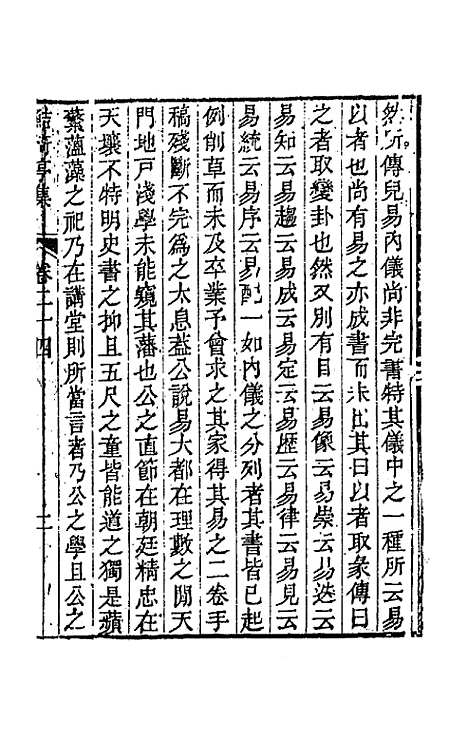 然所傳兒易內儀尚非完書特其儀中之一種所云易
以者也尚有易之亦成書而未出其曰以者取象傳曰
之者取變卦也然又別有目云易像云易崇云易迭云
易知云易趨云易成云易定云易歷云易律云易見云
易統云易序云易配一如內儀之分列者其書皆已起
例削草而未及卒業予曾求之其家得其易之二卷手
稿殘斷不完為之太息蓋公說易大都在理數之閒天
門地戸淺學未能窺其藩也公之直節在朝廷精忠在
天壤不特明史書之抑且五尺之童皆能道之獨是蘋
蘩薀藻之祀乃在講堂則所當言者乃公之學且公之
鮚埼亭集 卷二十四